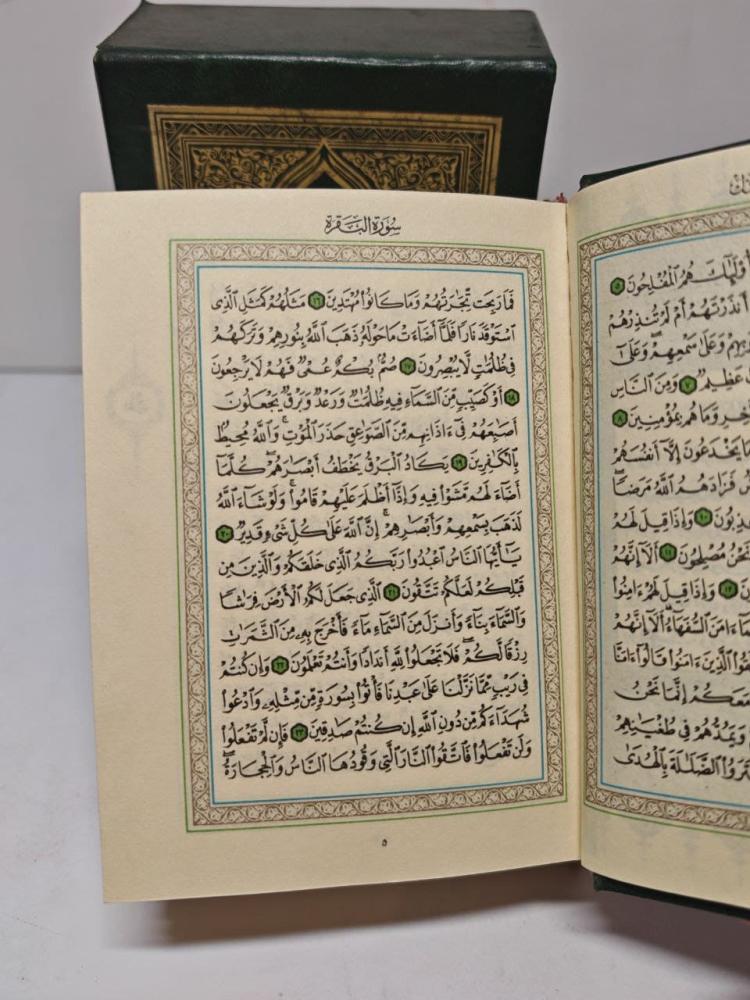 أُوْلَٰٓئِكَ هُمُ ٱلْمُفْلِحُونَ ٥
أَمْ لَمْ تُنذِرْهُمْ
وَعَلَىٰ سَمْعِهِمْ ۖ وَعَلَىٰٓ
عَظِيمٌ ٧ وَمِنَ ٱلنَّاسِ
وَمَا هُم بِمُؤْمِنِينَ ٨
يَخْدَعُونَ إِلَّآ أَنفُسَهُمْ
فَزَادَهُمُ ٱللَّهُ مَرَضًا ۖ
١٠ وَإِذَا قِيلَ لَهُمْ
نَحْنُ مُصْلِحُونَ ١١ أَلَآ إِنَّهُمْ
١٢ وَإِذَا قِيلَ لَهُمْ ءَامِنُوا۟
ءَامَنَ ٱلسُّفَهَآءُ ۗ أَلَآ إِنَّهُمْ
ٱلَّذِينَ ءَامَنُوا۟ قَالُوٓا۟ ءَامَنَّا
مَعَكُمْ إِنَّمَا نَحْنُ
وَيَمُدُّهُمْ فِى طُغْيَٰنِهِمْ
ٱلضَّلَٰلَةَ بِٱلْهُدَىٰ
سُورَةُ البَقَرَةِ
فَمَا رَبِحَت تِّجَٰرَتُهُمْ وَمَا كَانُوا۟ مُهْتَدِينَ ١٦ مَثَلُهُمْ كَمَثَلِ ٱلَّذِى
ٱسْتَوْقَدَ نَارًا فَلَمَّآ أَضَآءَتْ مَا حَوْلَهُۥ ذَهَبَ ٱللَّهُ بِنُورِهِمْ وَتَرَكَهُمْ
فِى ظُلُمَٰتٍ لَّا يُبْصِرُونَ ١٧ صُمٌّۢ بُكْمٌ عُمْىٌ فَهُمْ لَا يَرْجِعُونَ
١٨ أَوْ كَصَيِّبٍ مِّنَ ٱلسَّمَآءِ فِيهِ ظُلُمَٰتٌ وَرَعْدٌ وَبَرْقٌ يَجْعَلُونَ
أَصَٰبِعَهُمْ فِىٓ ءَاذَانِهِم مِّنَ ٱلصَّوَٰعِقِ حَذَرَ ٱلْمَوْتِ ۚ وَٱللَّهُ مُحِيطٌۢ
بِٱلْكَٰفِرِينَ ١٩ يَكَادُ ٱلْبَرْقُ يَخْطَفُ أَبْصَٰرَهُمْ ۖ كُلَّمَآ
أَضَآءَ لَهُم مَّشَوْا۟ فِيهِ وَإِذَآ أَظْلَمَ عَلَيْهِمْ قَامُوا۟ ۚ وَلَوْ شَآءَ ٱللَّهُ
لَذَهَبَ بِسَمْعِهِمْ وَأَبْصَٰرِهِمْ ۚ إِنَّ ٱللَّهَ عَلَىٰ كُلِّ شَىْءٍ قَدِيرٌ ٢٠
يَٰٓأَيُّهَا ٱلنَّاسُ ٱعْبُدُوا۟ رَبَّكُمُ ٱلَّذِى خَلَقَكُمْ وَٱلَّذِينَ مِن
قَبْلِكُمْ لَعَلَّكُمْ تَتَّقُونَ ٢١ ٱلَّذِى جَعَلَ لَكُمُ ٱلْأَرْضَ فِرَٰشًا
وَٱلسَّمَآءَ بِنَآءً وَأَنزَلَ مِنَ ٱلسَّمَآءِ مَآءً فَأَخْرَجَ بِهِۦ مِنَ ٱلثَّمَرَٰتِ
رِزْقًا لَّكُمْ ۖ فَلَا تَجْعَلُوا۟ لِلَّهِ أَندَادًا وَأَنتُمْ تَعْلَمُونَ ٢٢ وَإِن كُنتُمْ
فِى رَيْبٍ مِّمَّا نَزَّلْنَا عَلَىٰ عَبْدِنَا فَأْتُوا۟ بِسُورَةٍ مِّن مِّثْلِهِۦ وَٱدْعُوا۟
شُهَدَآءَكُم مِّن دُونِ ٱللَّهِ إِن كُنتُمْ صَٰدِقِينَ ٢٣ فَإِن لَّمْ تَفْعَلُوا۟
وَلَن تَفْعَلُوا۟ فَٱتَّقُوا۟ ٱلنَّارَ ٱلَّتِى وَقُودُهَا ٱلنَّاسُ وَٱلْحِجَارَةُ ۖ
٥